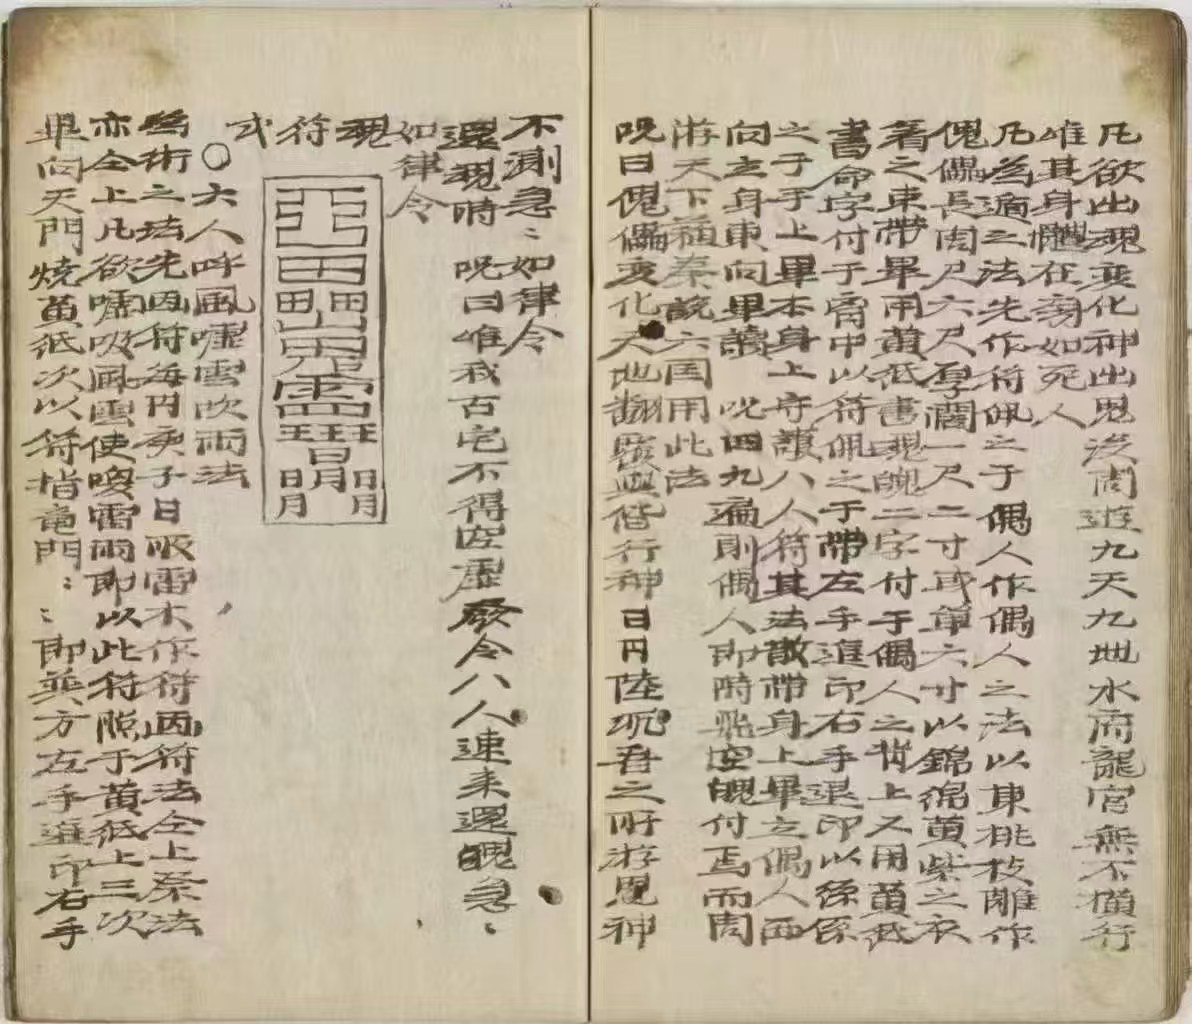 凡欲出魂变化神出鬼没周遊九天九地水府龍宮無不横行
唯其身體在旁如死人
凡为適之法先作符佩之于偶人作偶人之法以東桃枝雕作
傀儡長周尺六尺厚闊一尺二寸或單六寸以錦綿黄紫之衣
着之束帶畢用黄紙書魂魄二字付于偶人之背上又用黄紙
書命字付于胷中以符佩之于帶左手進印右手退印以係係
之于手上畢本身上守護八人符其法散帶身上畢立偶人西
向立身東向畢讀 咒四九遍則偶人即時飛空魄付焉而周
游天下蘓秦說六国用此法
咒曰傀儡变化天地翻 與偕行神日円陸 吾之所游鬼神
不測急〻如律令
還魂時 咒曰唯我古宅不得空虚發令八人速来還魄急〻
如律令
魂符式
〇六人呼風嘘雲吹雨法
為術之法先因符每円庚子日吸雷木作符因符法仝上祭法
亦仝上凡欲嘘吸風雲使喚雷雨即以此符照于黄紙上三次
畢向天門燒黄紙次以符指竜門〻〻即巽方左手進印右手